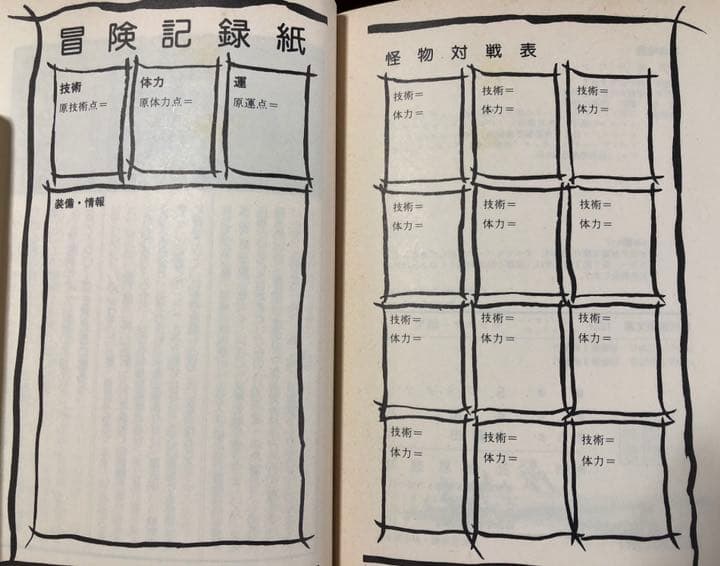 冒険記録紙
技術
原技術点＝
体力
原体力点＝
運
原運点＝
装備・情報
怪物対戦表
技術＝
体力＝
技術＝
体力＝
技術＝
体力＝
技術＝
体力＝
技術＝
体力＝
技術＝
体力＝
技術＝
体力＝
技術＝
体力＝
技術＝
体力＝
技術＝
体力＝
技術＝
体力＝
技術＝
体力＝